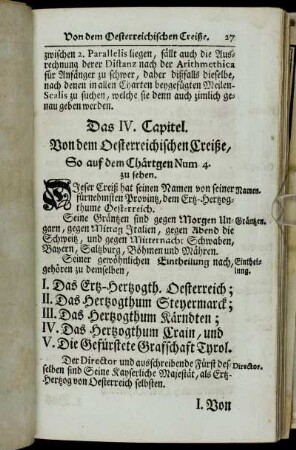 Von dem Oesterreichischen Creiße. 27
zwischen 2. Parallelis liegen, fällt auch die Aus-
rechnung derer Distanz nach der Arithmethica
für Anfänger zu schwer, daher dißfalls dieselbe,
nach denen in allen Charten beygefügten Meilen-
Scalis zu suchen, welche sie denn auch zimlich ge-
nau geben werden.
Das IV. Capitel.
Von dem Oesterreichischen Creiße,
So auf dem Chärtgen Num 4.
zu sehen.
Dieser Creiß hat seinen Namen von seiner Namen.
fürnehmsten Provintz, dem Ertz-Hertzog-
thume Oesterreich.
Seine Gräntzen sind gegen Morgen Un- Gräntzen.
garn, gegen Mittag Italien, gegen Abend die
Schweitz, und gegen Mitternacht Schwaben,
Bayern, Saltzburg, Böhmen und Mähren.
Seiner gewöhnlichen Eintheilung nach, Einthei-
gehören zu demselben, lung.
I. Das Ertz-Hertzogth. Oesterreich;
II. Das Hertzogthum Steyermarck;
III. Das Hertzogthum Kärndten;
IV. Das Hertzogthum Crain, und
V. Die Gefürstete Grafschaft Tyrol.
Der Director und ausschreibende Fürst des- Director.
selben sind Seine Kayserliche Majestät, als Ertz-
Hertzog von Oesterreich selbsten.
I. Von